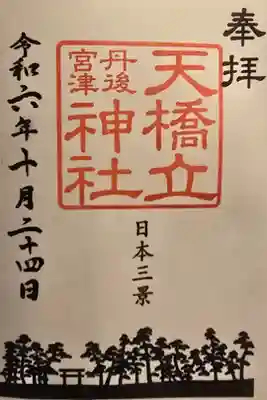 奉拝
天橋立
丹後
宮津
神社
日本三景
令和六年十月二十四日